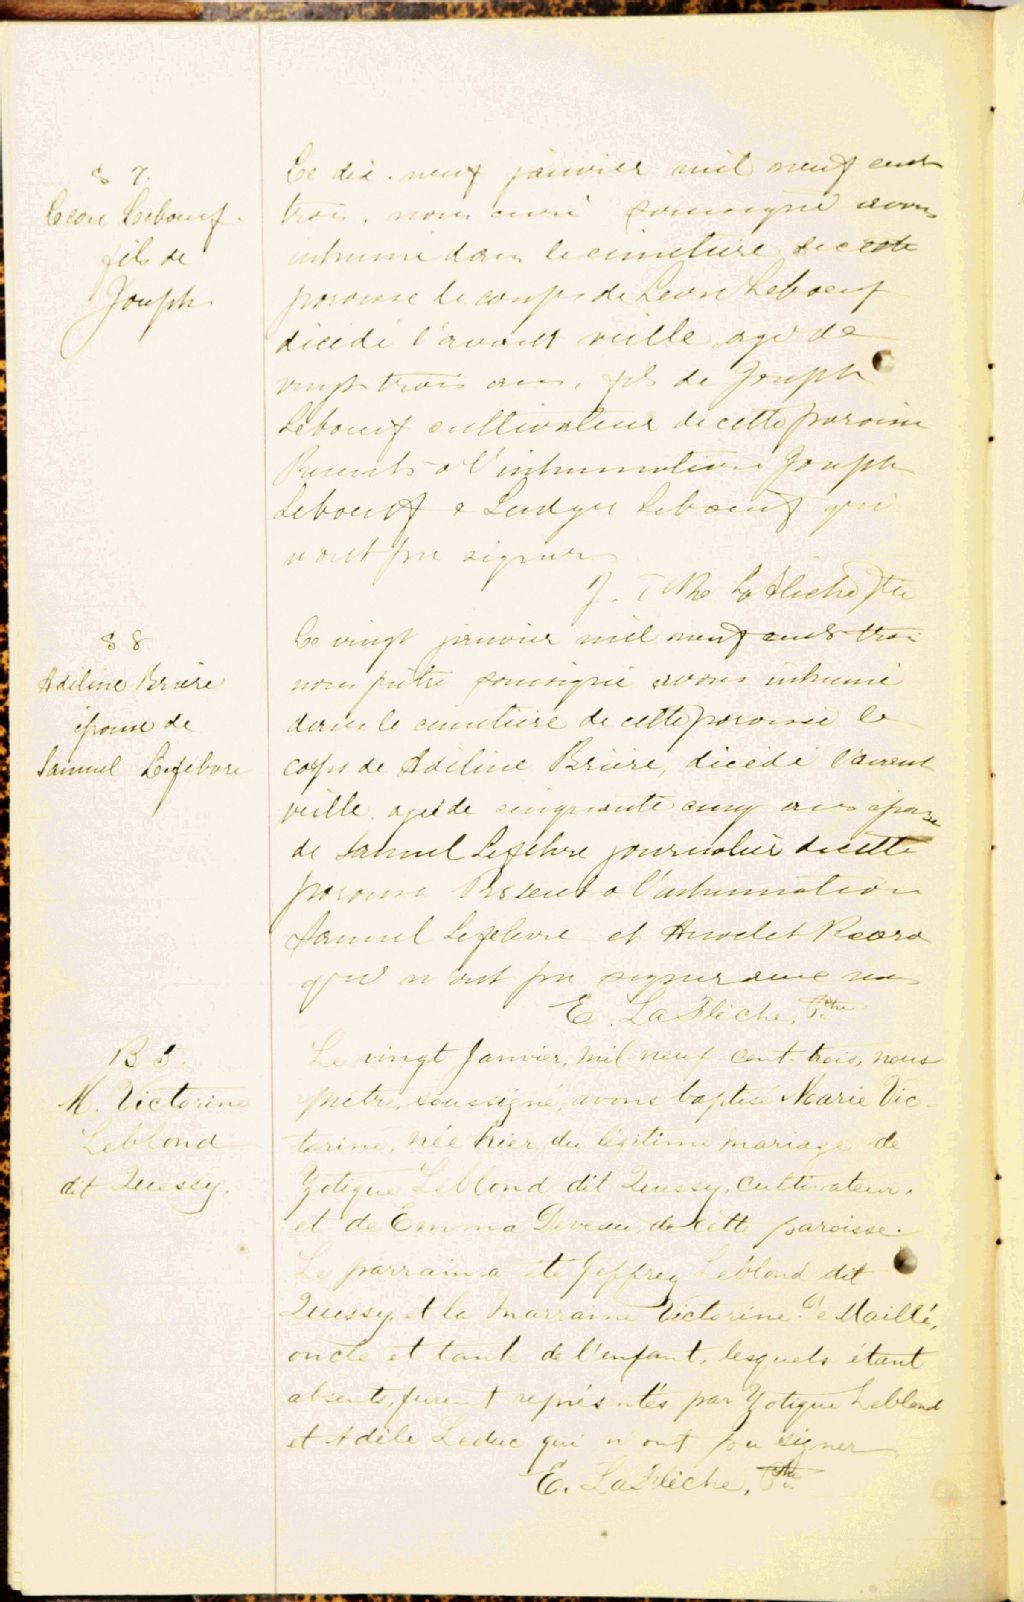 S 7.
Léon Leboeuf
fils de
Joseph
Le dix-neuf janvier mil neuf cent
trois, nous curé soussigné avons
inhumé dans le cimetière de cette
paroisse le corps de Léon Leboeuf
décédé l'avant veille, agé de
vingt trois ans, fils de Joseph
Leboeuf cultivateur de cette paroisse
Présents a l'inhumation Joseph
Leboeuf & Ludger Leboeuf qui
n'ont pu signer
La Flèche Ptre
S 8
Adéline Brière
épouse de
Samuel Lefebvre
Le vingt janvier mil neuf cent trois
nous prêtre soussigné avons inhumé
dans le cimetière de cette paroisse le
corps de Adéline Brière, décédé l'avant
veille, agée de cinquante cinq ans épouse
de Samuel Lefebvre journalier de cette
paroisse Présent a l'inhumation
Samuel Lefebvre et
qui n'ont pu signer avec nous
E. LaFlèche, Ptre
B 5.
M. Victorine
Leblond
dit Quessy.
Le vingt Janvier, mil neuf cent trois, nous
prêtre, soussigné, avons baptisé Marie Vic-
torine, née hier, du légitime mariage de
Zotique Leblond dit Quessy, cultivateur,
et de Emma Deveau, de cette paroisse.
Le parrain a été Jeffrey Leblond dit
Quessy, et la marraine Victorine De Maillé,
oncle et tante de l'enfant, lesquels étant
absents, furent représentés par Zotique Leblond
et Adèle Leduc qui n'ont pu signer
E. LaFlèche, Ptre